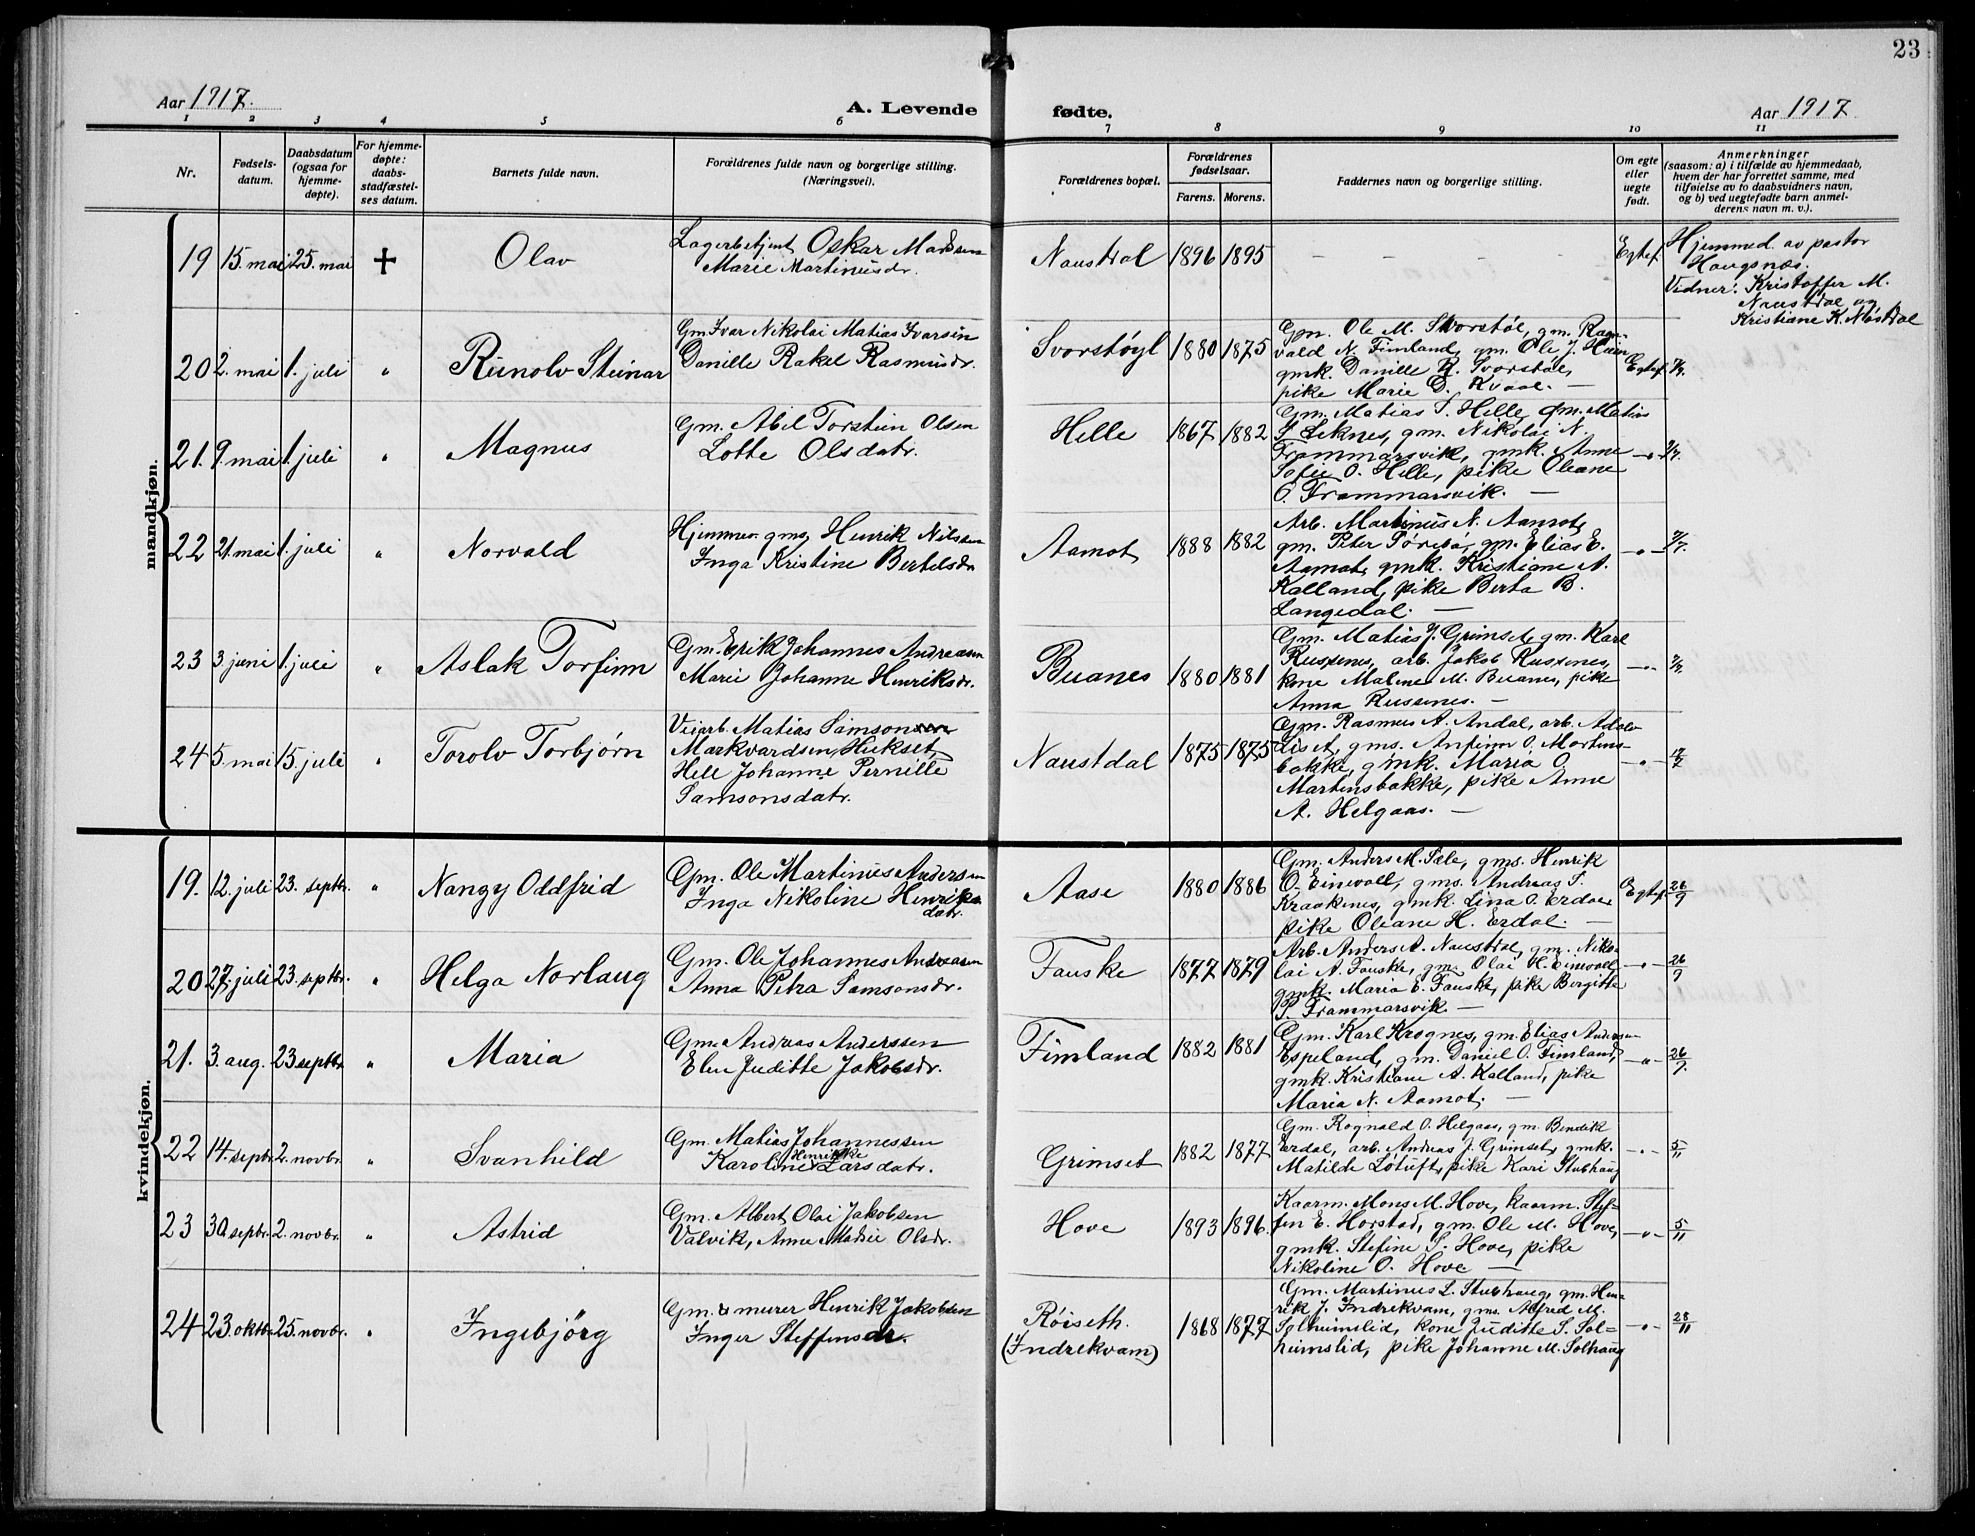 23
Aar 1917.
A. Levende
fødte.
Aar 1917
1 2 3 4 5 6 7 8 9 10 11
Nr.
Fødsels-
datum.
Daabsdatum
(ogsaa for
hjemme-
døpte).
For hjemme-
døpte:
daabs-
stadfæstel-
ses datum.
Barnets fulde navn.
Forældrenes fulde navn og borgerlige stilling.
(Næringsvei).
Forældrenes bopæl.
Forældrenes
fødselsaar.
Farens. Morens.
Faddernes navn og borgerlige stilling.
Om egte
eller
uegte
født.
Anmerkninger
(saasom: a) i tilfælde av hjemmedaab,
hvem der har forrettet samme, med
tilføielse av to daabsvidners navn,
og b) ved uegtefødte barn anmel-
derens navn m. v.).
mandkjøn.
19 15. mai 25. mai + Olav
Lagerbetjent Oskar Madssen
Marie Martinusdr.
Naustdal 1896 1895 – – – – – Egtef.
Hjemmed. av pastor
Haugsnæs.
Vidner: Kristoffer M.
Naustdal og
Kristiane K. Nøstdal
20 2. mai 1. juli " Runolv Steinar
Gm. Ivar Nikolai Matias Ivarsen
Danille Rakel Rasmusdr.
Svorstøyl 1880 1875
Gm. Ole M. Svorstøl, gm. Ragn-
vald N. Fimland, gm. Ole J.
gmk. Danille R. Svorstøl,
pike Marie D. Kvaal. —
Egtef. 7/7.
21. 9. mai 1. juli " Magnus
Gm. Abel Torstein Olsen
Lotte Olsdatr.
Helle 1867 1882
Gm. Matias S. Helle, gm. Matias
S. Leknes, gm. Nikolai N.
Frammarsvik, gmk. Anne
Sofie O. Helle, pike Oleane
O. Frammarsvik. —
—"— 7/7.
22 21. mai 1. juli " Norvald
Hjemmen. gms. Henrik Nilssen
Inga Kristine Bertelsdr.
Aamot 1888 1882
Arb. Martinus N. Aamot,
gm. Peter, gm. Elias E.
Aamot, gmk. Kristiane A.
Kalland, pike Berta B.
Langedal. —
—"— 7/7.
23 3. juni 1. juli " Aslak Torfinn
Gm. Erik Johannes Andreassen
Marie Johanne Henriksdr.
Buanes 1880 1881
Gm. Matias J. Grimset, gm. Karl
Russenes, arb. Jakob Russenes,
kone Malene M. Buanes, pike
Anna Russenes. —
—"— 7/7.
24 5. mai 15. juli " Torolv Torbjørn
Veiarb. Matias Samson
Markvardsen Hukset
Hell Johanne Pernille
Samsonsdatr.
Naustdal 1875 1875
Gm. Rasmus A. Andal, arb. Adolv
Liset, gms. Anfinn O. Martins-
bakke, gmk. Maria O.
Martinsbakke, pike Anne
A. Helgaas. —
—"— 17/7
kvindekjøn.
19. 12. juli 23. septbr. " Nangy Oddfrid
Gm. Ole Martinus Anderssen
Inga Nikoline Henriks-
datr.
Aase 1880 1886
Gm. Anders M. Sæle, gms. Henrik
O. Einevoll, gms. Andreas S.
Kraakenes, gmk. Lina O. Erdal,
pike Oleane H. Erdal. —
Egtef. 26/9
20 27. juli 23. septbr. " Helga Norlaug
Gm. Ole Johannes Andreassen
Anna Petra Samsonsdr.
Fauske 1877 1879
Arb. Anders A. Naustdal, gm. Niko-
lai A. Fauske, gm. Olai H. Einevoll,
gmk. Maria E. Fauske, pike Bergitte
S. Frammarsvik —
—"— 26/9
21. 3. aug. 23 septbr. " Maria
Gm. Andreas Anderssen
Elen Juditte Jakobsdr.
Fimland 1882 1881
Gm. Karl Krognes, gm. Elias Anderssen
Espeland, gm. Daniel O. Fimland,
gmk. Kristiane A. Kalland, pike
Maria N. Aamot. —
—"— 26/9.
22 14. septbr. 2. novbr. " Svanhild
Gm. Matias Johannessen
Henrikke
Karoline Larsdatr.
Grimset 1882 1877
Gm. Rognald O. Helgaas, gm. Bendik
Erdal, arb. Andreas J. Grimset, gmk.
Matilde Løtuft, pike Kari Stubhaug
—"— 5/11
23 30. septbr. 2. novbr. " Astrid
Gm. Albert Olai Jakobsen
Valvik, Anne Madsie Olsdr.
Hove 1893 1896.
Kaarm. Mons M. Hove, kaarm. Stef-
fen E. Horstad, gm. Ole M. Hove,
gmk. Stefine S. Hove, pike
Nikoline O. Hove —
—"— 5/11
24 23. oktbr. 25. novbr. " Ingebjörg
Gm. & murer Henrik Jakobsen
Inger Steffensdr.
Røiseth.
(Indrekvam)
1868 1877
Gm. Martinus L. Stubhaug, gm. Hen-
rik J. Indrekvam, gms. Alfred M.
Solheimslid, kone Juditte S. Sol-
heimslid, pike Johanne M. Solhaug
—"— 28/11